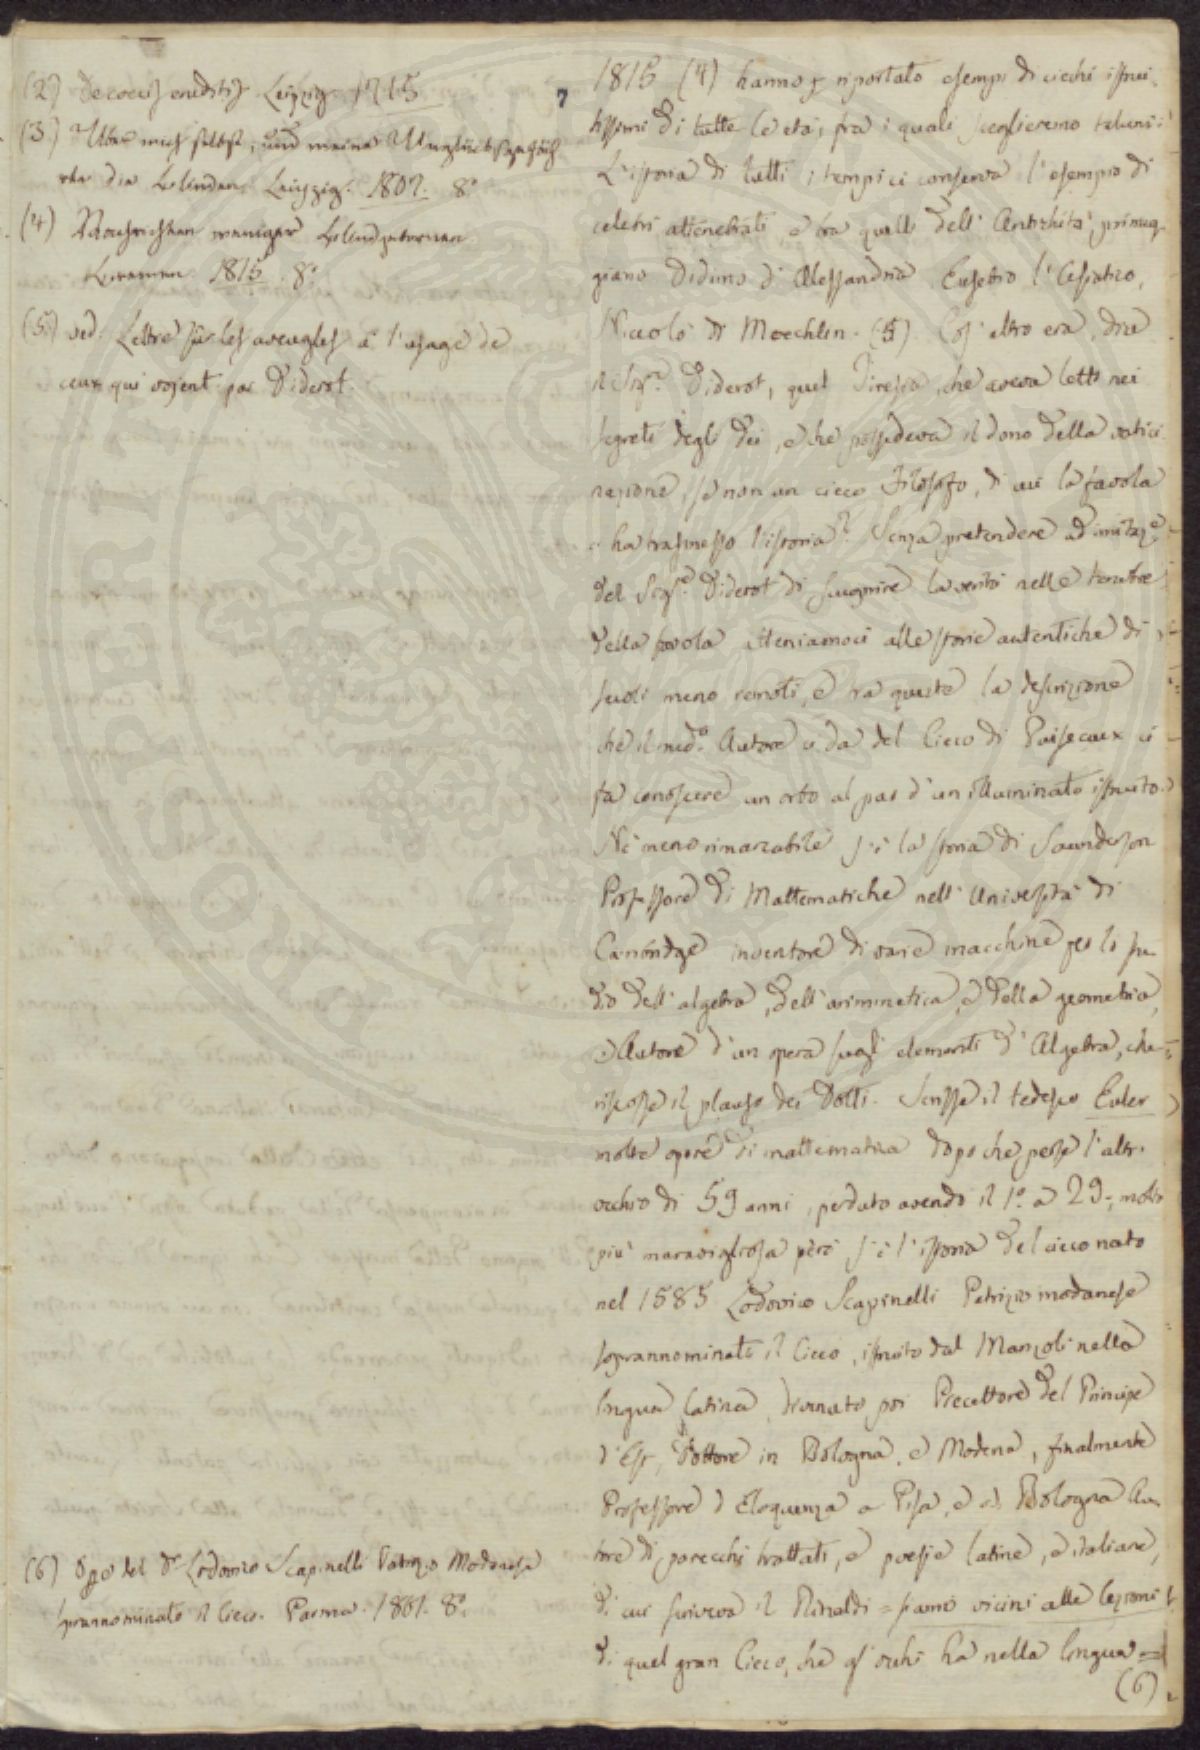 (2) De coecis eruditis Leipzig 1715
(3) Über mich selbst, und meine Unglücksgefähr
ten die Blinden. Leipzig. 1807. 8.°
(4) Nachrichten einiger Blindgebornen
Bremen. 1815. 8.°
(5) ved. Lettre sur les aveugles à l'usage de
ceux qui voient par Diderot.
(6) Ope del D.r Lodovico Scapinelli Patrizio Modanese
soprannominato il Cieco. Parma. 1801. 8.°
7
1815 (4) hanno riportato esempi di ciechi istrui-
tissimi di tutte le età, fra i quali sceglieremo taluni:
L'istoria di tutti i tempi ci conserva l'esempio di
celebri attenebrati, e tra quelli dell' Antichità, primeg-
giano Didimo d' Alessandria Eusebio l'Asiatico,
Niccolò di Moechlin. (5) Cos' altro era, dice
il Sig.r Diderot, quel Tiresia, che aveva letto nei
segreti degli dei, e che possedeva il dono della vatici-
nazione, se non un cieco Filosofo, di cui la favola
ci ha trasmesso l'istoria? Senza pretendere ad imitaz.e
del Sig.r Diderot di scuoprire la verità nelle tenebre
della favola atteniamoci alle storie autentiche di
secoli meno remoti, e tra queste la descrizione
che il med.o Autore ci da del Cieco di Puiseaux ci
fa conoscere un orbo al par d'un illuminato istruito.
Nè meno rimarcabile s'è la storia di Saunderson
Professore di Mattematiche nell' Università di
Cambridge inventore di varie macchine per lo stu-
dio dell' algebra, dell' arimmetica, e della geometria,
e Autore d'un opera sugl' elementi d' Algebra, che
riscosse il plauso dei Dotti. Scrisse il tedesco Euler
molte opere di mattematica dopo che perse l'altro
occhio di 59 anni, perduto avendo il 1.° a 29; molto
più maravigliosa però s'è l'istoria del cieco nato
nel 1585 Lodovico Scapinelli Patrizio modanese
soprannominato il Cieco, istruito dal Manzoli nella
lingua latina, divenuto poi Precettore del Principe
d' Est, Dottore in Bologna, e Modena, finalmente
Professore d' Eloquenza a Pisa, e a Bologna Au-
tore di parecchi trattati, e poesie latine, e italiane,
di cui scriveva il Rinaldi = siamo vicini alle lezioni
di quel gran Cieco, che gl' occhi ha nella lingua =
(6)